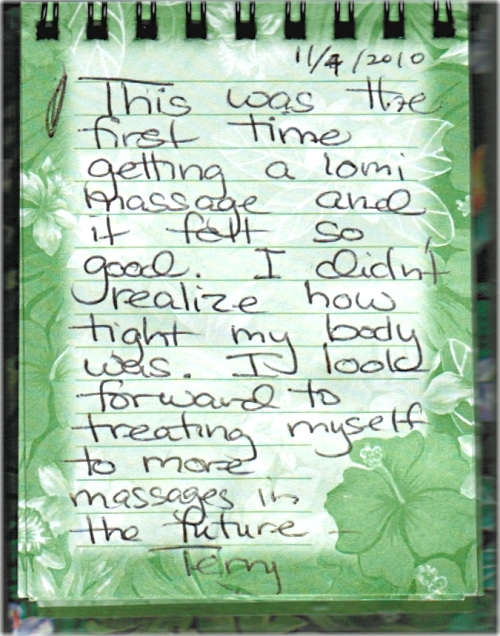 11/4/2010
This was the
first time
getting a lomi
massage and
it felt so
good. I didn't
realize how
tight my body
was. I look
forward to
treating myself
to more
massages in
the future
Terry